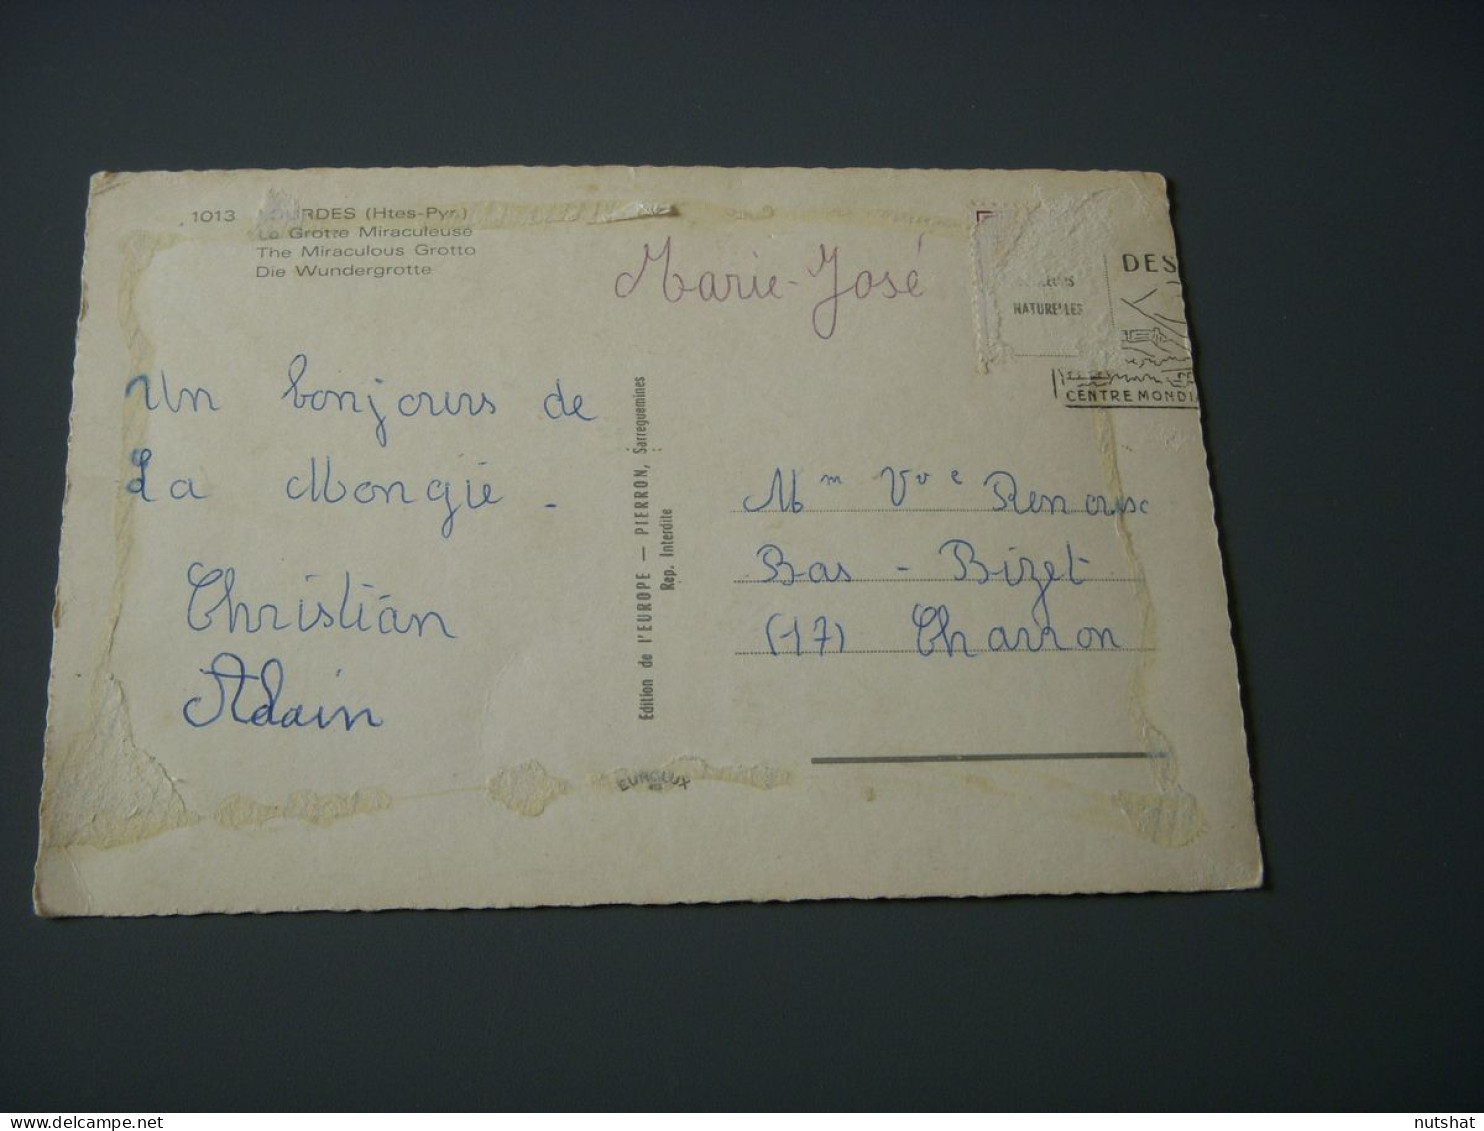 1013 LOURDES (Htes-Pyr.)
La Grotte Miraculeuse
The Miraculous Grotto
Die Wundergrotte
Marie-José
NATURELLES
DES
CENTRE MONDI
Un bonjours de
La Mongie -
Christian
Alain
Edition de l'EUROPE — PIERRON, Sarreguemines
Rep. Interdite
Mm Vve Renoux
Bas - Bizet
(17) Charron
EUROLUX
nutshat
delcampe.net